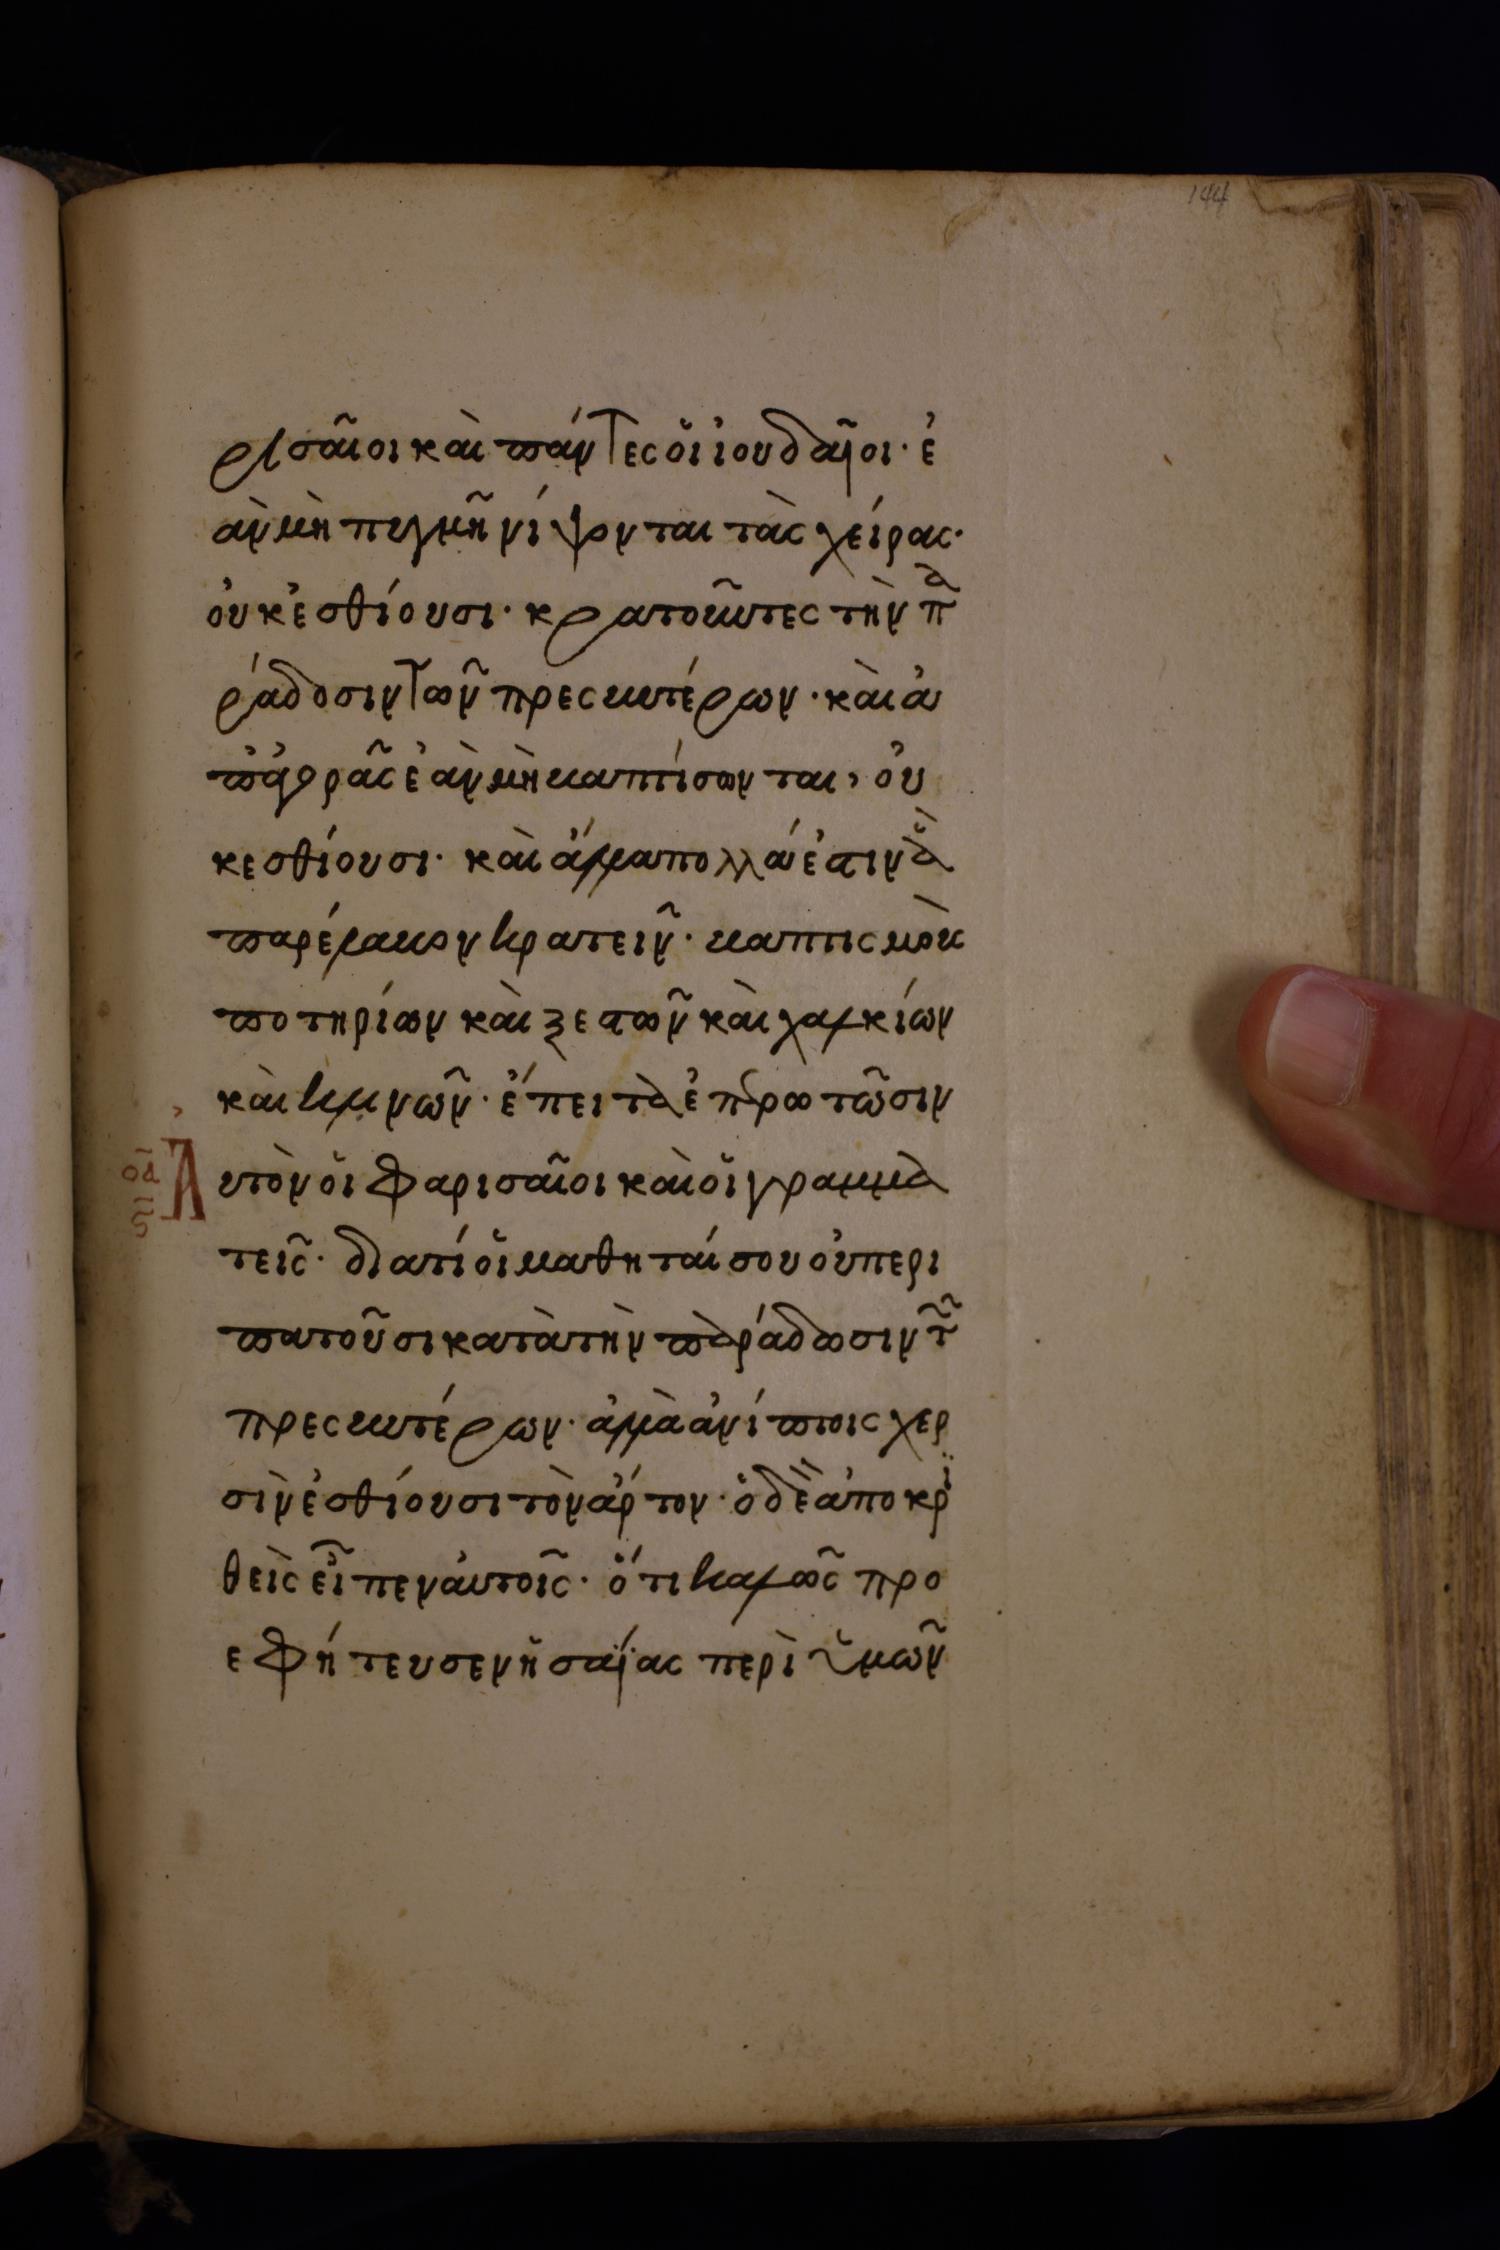 144
ρισαῖοι καὶ πάντες οἵ ἰουδαῖοι· ἐ
ὰν μὴ πυγμῆ νίψονται τὰς χείρας·
οὐκ ἐσθίουσι· κρατοῦντες τὴν πα
ράδοσιν τῶν πρεσβυτέρων· καὶ ἀ
πὀἀγορᾶς ἐὰν μὴ βαπτίσωνται, οὐ
κεσθίουσι· καὶ ἄλλα πολλά ἐστιν ἃ
παρέλαβον κρατεῖν· βαπτισμοὺς
ποτηρίων καὶ ξεστῶν καὶ χαλκίων
καὶ κλινῶν· ἔπειτα ἐπερωτῶσιν
Αυτὸν οἵ φαρισαῖοι καὶ οἵ γραμμα
τεῖς· διατί οἵ μαθηταί σου οὐ περι
πατοῦσι κατὰ τὴν παράδωσιν τῶν
πρεσβυτέρων· ἀλλὰ ἀνίπτοις χερ
σὶν ἐσθίουσι τὸν ἄρτον· ὁ δὲ ἀποκρι
θεὶς εἶπεν ἀυτοῖς· ὅτι καλῶς προ
εφήτευσεν ἡσαΐας περὶ ὑμῶν
οα
ς